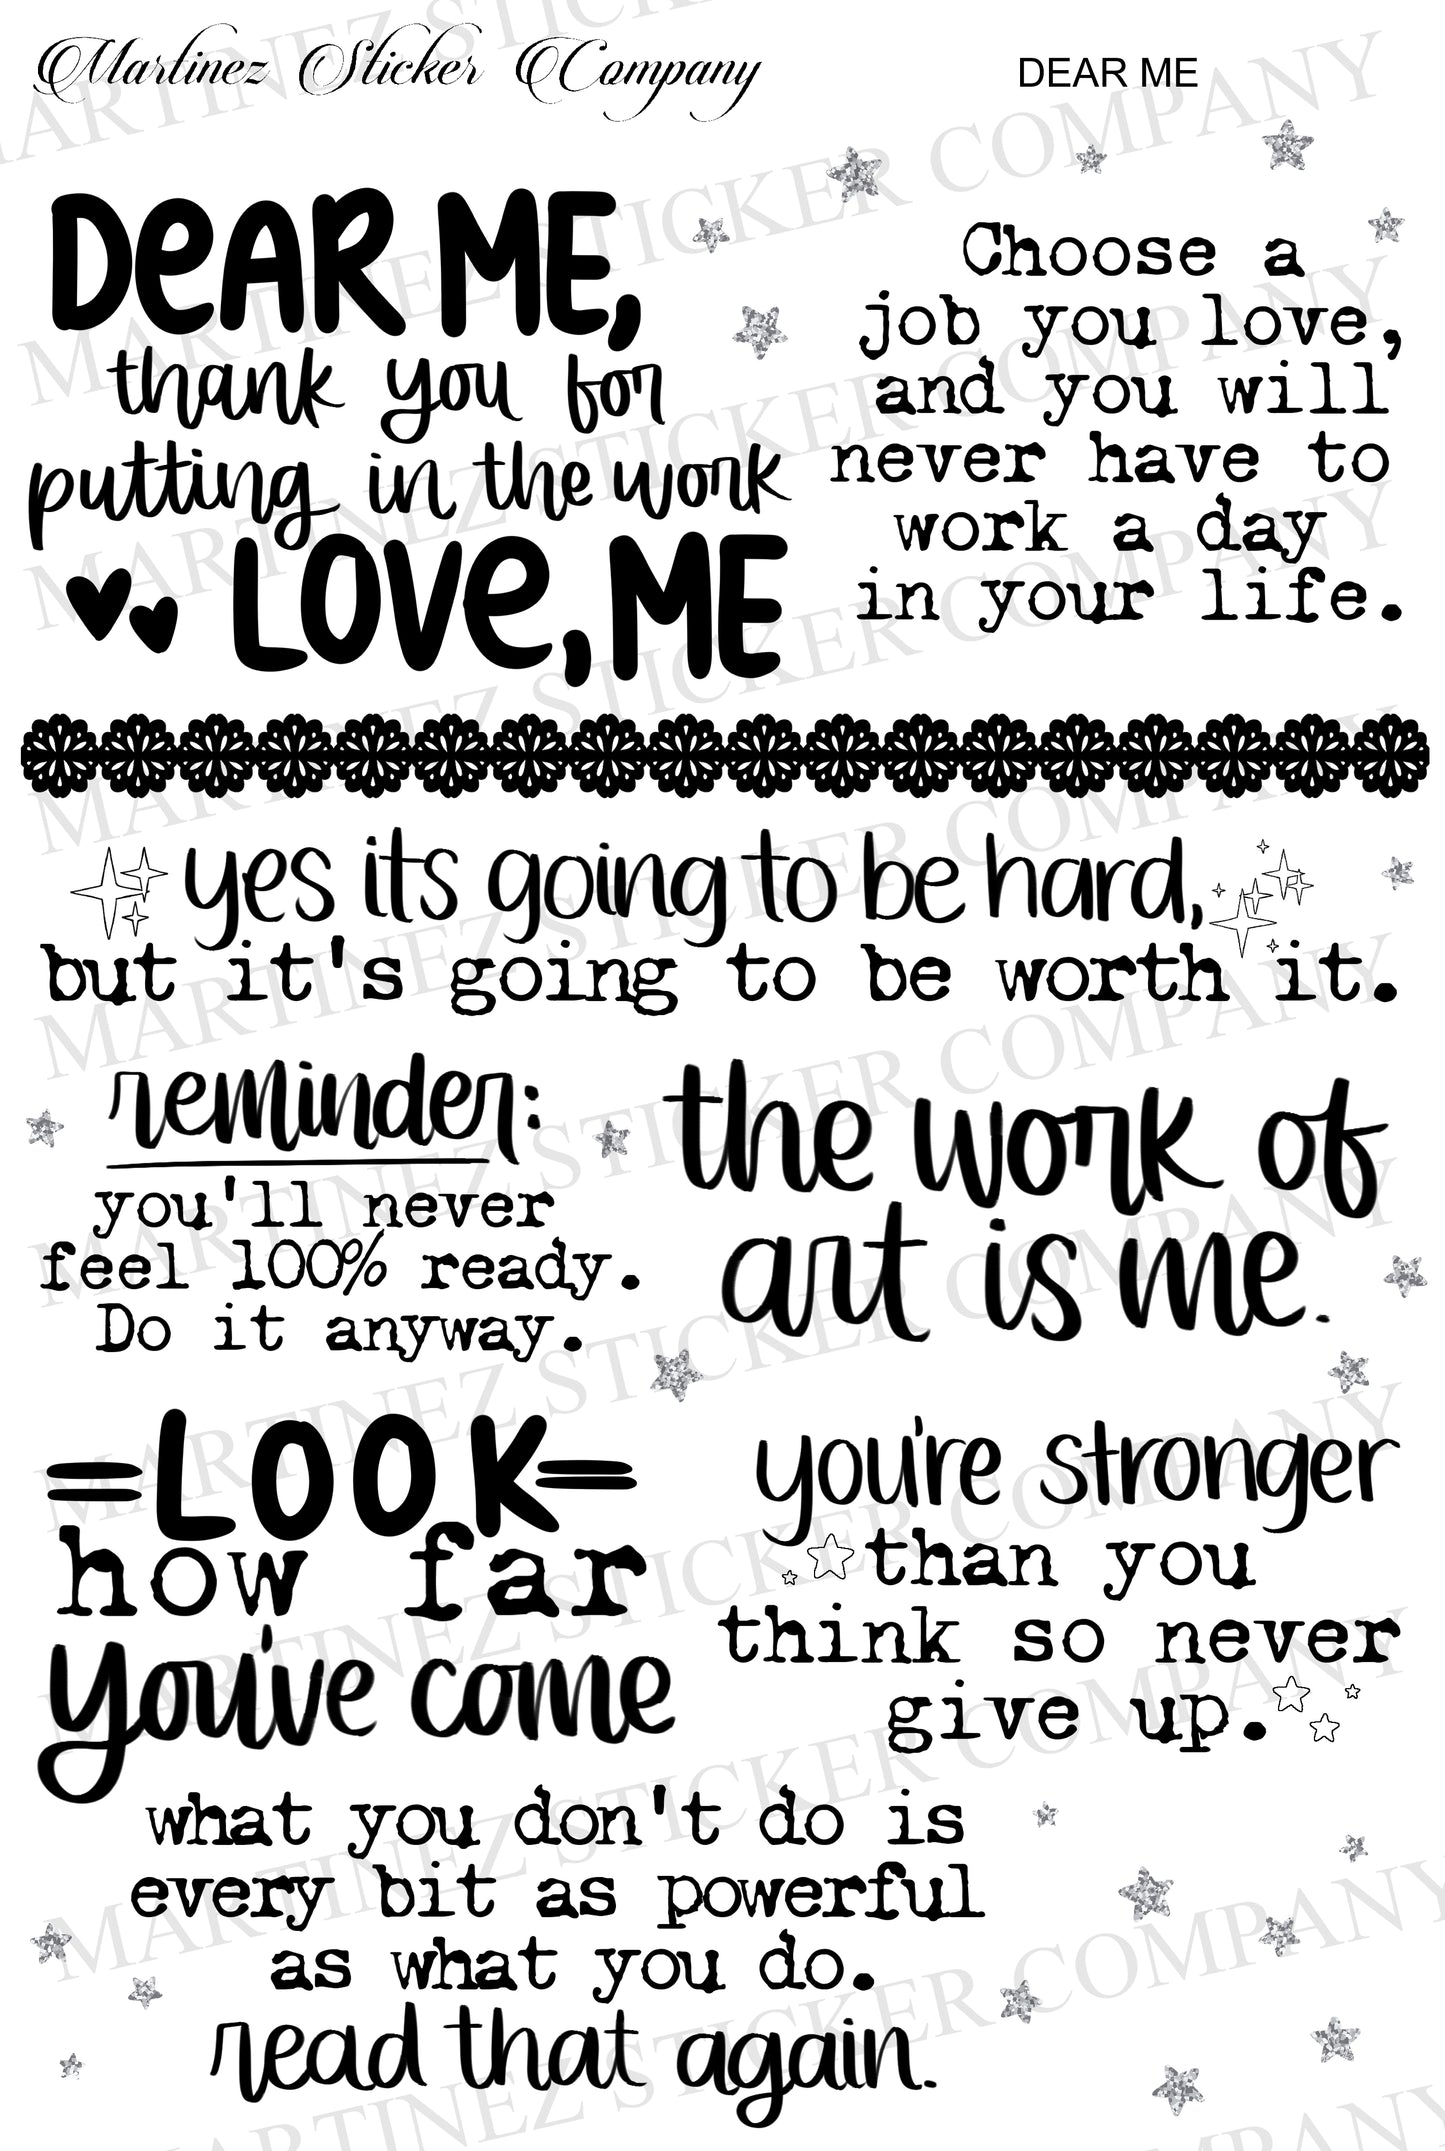 Martinez Sticker Company
DEAR ME
DeAR ME,
thank you for
putting in the work
LOVe, ME
Choose a
job you love,
and you will
never have to
work a day
in your life.
yes its going to be hard,
but it's going to be worth it.
reminder:
you'll never
feel 100% ready.
Do it anyway.
the work of
art is me.
=LOOK=
how far
you've come
you're stronger
than you
think so never
give up.
what you don't do is
every bit as powerful
as what you do.
read that again.
MARTINEZ STICKER COMPANY
MARTINEZ STICKER COMPANY
MARTINEZ STICKER COMPANY
MARTINEZ STICKER COMPANY
MARTINEZ STICKER COMPANY
MARTINEZ STICKER COMPANY
MARTINEZ STICKER COMPANY
MARTINEZ STICKER COMPANY
MARTINEZ STICKER COMPANY
MARTINEZ STICKER COMPANY